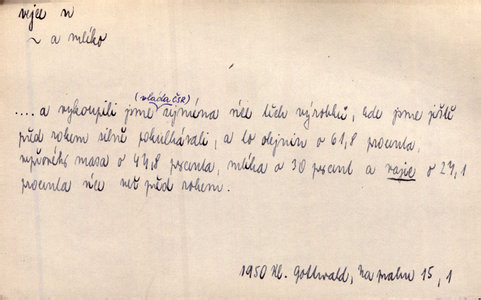 vejce n
~ a mléko
(vláda ČSR)
.... a vykoupili jsme zejména více těch výrobků, kde jsme ještě
před rokem silně pokulhávali, a to olejnin o 61,8 procenta,
vepřového masa o 44,8 procenta, mléka o 30 procent a vajec o 24,1
procenta více než před rokem.
1950 Kl. Gottwald, Na prahu 15, 1